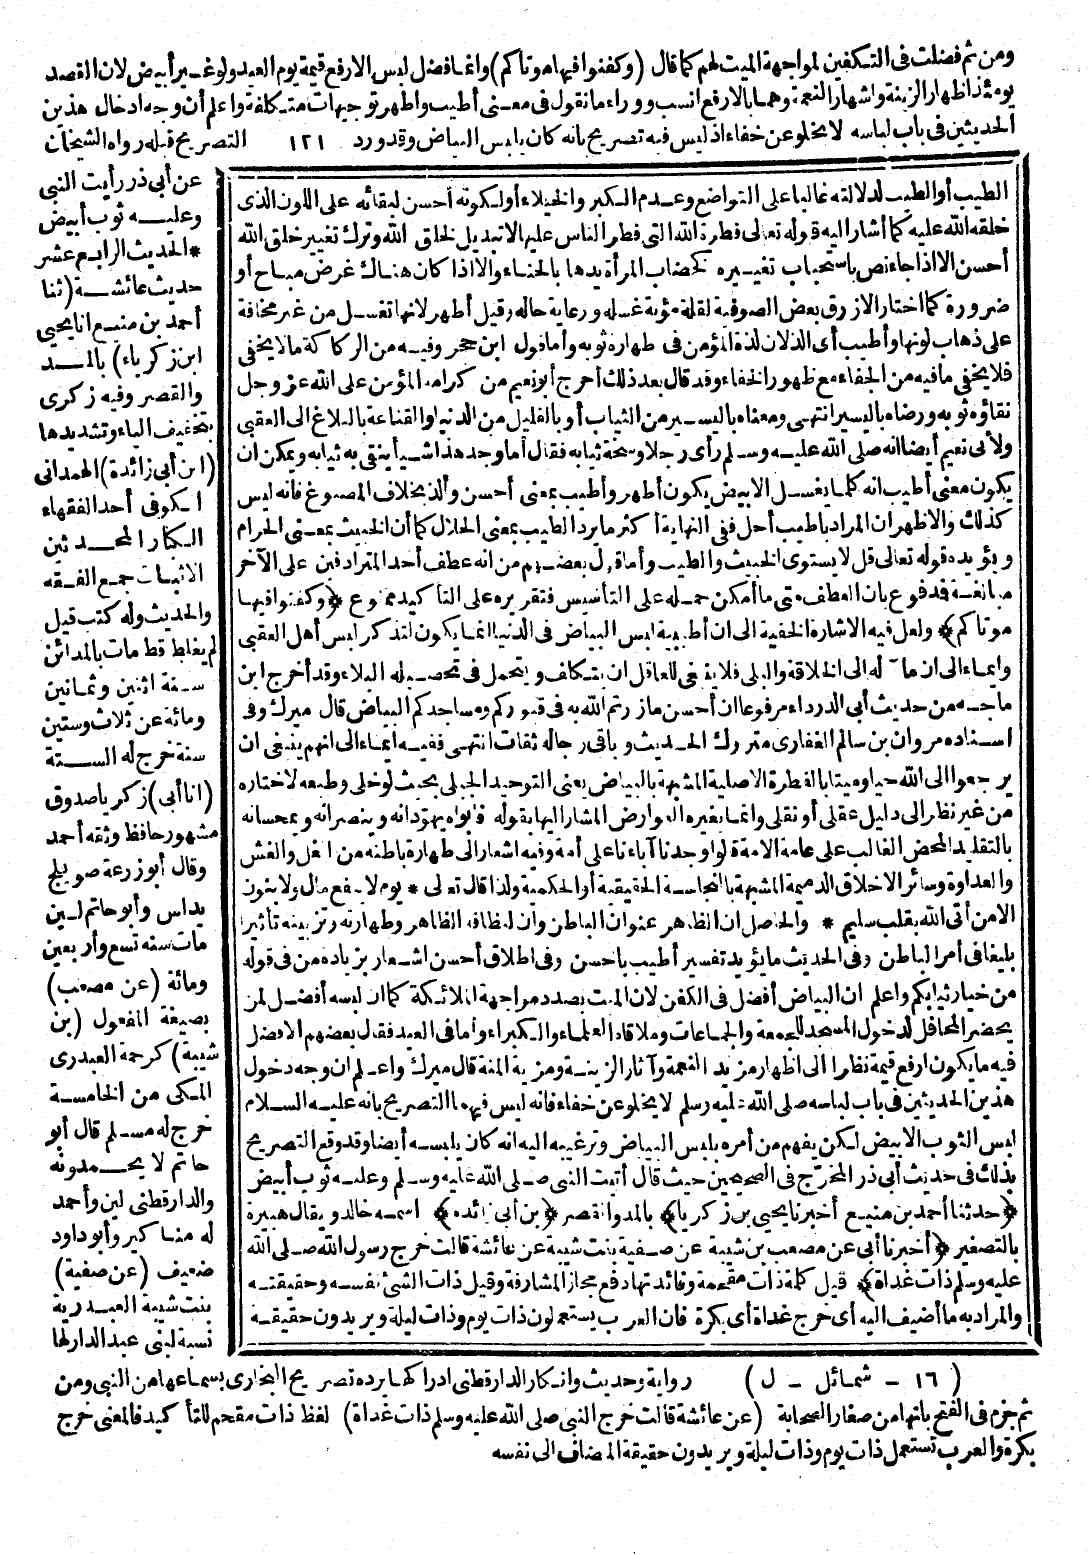 ومن ثم فضلت فى التكفين لمواجهة الميت لهم كما قال (وكفنوا فيها موتاكم) وانما فضل لبس الارفع قيمة يوم العيد ولو غير أبيض لان القصد
يومئذ اظهار الزينة واشهار النعمة وهما بالارفع انسب ووراء ما نقول فى معنى أطيب واطهر توجيهات متكلفة واعلم أن وجه ادخال هذين
الحديثين فى باب لباسه لا يخلو عن خفاء اذ ليس فيه تصريح بانه كان يلبس البياض وقد ورد ١٢١ التصريح قبله رواه الشيخان
عن أبى ذر رأيت النبى
وعليه ثوب أبيض
* الحديث الرابع عشر
حديث عائشة (ثنا
أحمد بن منيع انا يحيى
ابن زكرياء) بالمد
والقصر وفيه زكرى
بتخفيف الياء وتشديدها
(ابن أبى زائدة) الهمدانى
الكوفى أحد الفقهاء
الكبار المحدثين
الاثبات جمع الفقه
والحديث وله كتب قيل
لم يغلط قط مات بالمدائن
سنة اثنين وثمانين
ومائة عن ثلاث وستين
سنة خرج له الستة
(انا أبى) زكريا صدوق
مشهور حافظ وثقه أحمد
وقال أبو زرعة صويلح
يدلس وأبو حاتم لين
مات سنة تسع وأربعين
ومائة (عن مصعب)
بصيغة المفعول (بن
شيبة) كرحمة العبدرى
المكى من الخامسة
خرج له مسلم قال أبو
حاتم لا يحمدونه
والدارقطنى لين وأحمد
له مناكير وأبو داود
ضعيف (عن صفية)
بنت شيبة العبدرية
نسبة لبنى عبد الدار لها
الطيب أو الطيب لدلالته غالبا على التواضع وعدم الكبر والخيلاء أو لكونه أحسن لبقائه على اللون الذى
خلقه الله عليه كما أشار اليه قوله تعالى فطرة الله التى فطر الناس عليها لا تبديل لخلق الله وترك تغيير خلق الله
أحسن الا اذا جاء نص باستحباب تغييره كخضاب المرأة يدها بالحناء والا اذا كان هناك غرض مباح أو
ضرورة كما اختار الازرق بعض الصوفية لقلة مؤنة غسله ورعاية حاله وقيل أطهر لانها تغسل من غير مخافة
على ذهاب لونها وأطيب أى ألذ لان لذة المؤمن فى طهارة ثوبه وأما قول ابن حجر وفيه من الركاكة ما لا يخفى
فلا يخفى ما فيه من الخفاء مع ظهور الخفاء وقد قال بعد ذلك أخرج أبو نعيم من كرامة المؤمن على الله عز وجل
نقاؤه ثوبه ورضاه باليسير انتهى ومعناه باليسير من الثياب أو بالقليل من الدنيا والقناعة بالبلاغ الى العقبى
ولأبى نعيم أيضا انه صلى الله عليه وسلم رأى رجلا وسخة ثيابه فقال أما وجد هذا شيأ ينقى به ثيابه ويمكن ان
يكون معنى أطيب انه كلما يغسل الابيض يكون أطهر وأطيب بمعنى أحسن وألذ بخلاف المصبوغ فانه ليس
كذلك والاظهر ان المراد باطيب أحل ففى النهاية أكثر ما يرد الطيب بمعنى الحلال كما أن الخبيث بمعنى الحرام
ويؤيده قوله تعالى قل لا يستوى الخبيث والطيب وأما قول بعضهم من انه عطف أحد المترادفين على الآخر
مبالغة فمدفوع بان العطف متى ما أمكن حمله على التأسيس فتقريره على التأكيد ممنوع ﴿وكفنوا فيها
موتاكم﴾ ولعل فيه الاشارة الخفية الى ان أطيبية لبس البياض فى الدنيا انما يكون لتذكر لبس أهل العقبى
وايماء الى ان مآله الى الخلاقة والبلى فلا ينبغى للعاقل ان يتكلف ويتحمل فى تحصيله البلاء وقد أخرج ابن
ماجه من حديث أبى الدرداء مرفوعا ان أحسن ما زرتم الله به فى قبوركم ومساجدكم البياض قال ميرك وفى
اسناده مروان بن سالم الغفارى متروك الحديث وباقى رجاله ثقات انتهى ففيه ايماء الى انهم ينبغى ان
يرجعوا الى الله حيا وميتا بالفطرة الاصلية المشبهة بالبياض يعنى التوحيد الجبلى بحيث لو خلى وطبعه لاختاره
من غير نظر الى دليل عقلى أو نقلى وانما يغيره العوارض المشار اليها بقوله فابواه يهودانه وينصرانه ويمجسانه
بالتقليد المحض الغالب على عامة الامة قالوا وجدنا آباءنا على أمة وفيه اشعار الى طهارة باطنه من الغل والغش
والعداوة وسائر الاخلاق الدميمة المشبهة بالنجاسة الحقيقية أو الحكمية ولذا قال تعالى * يوم لا ينفع مال ولا بنون
الا من أتى الله بقلب سليم * والحاصل ان الظاهر عنوان الباطن وان لنظافة الظاهر وطهارته وتزيينه تأثيرا
بليغا فى أمر الباطن وفى الحديث ما يؤيد تفسير أطيب باحسن وفى اطلاق أحسن اشعار بزيادة من فى قوله
من خيار ثيابكم واعلم ان البياض أفضل فى الكفن لان الميت بصدد مواجهة الملائكة كما ان لبسه أفضل لمن
يحضر المحافل لدخول المسجد للجمعة والجماعات وملاقاة العلماء والكبراء وأما فى العيد فقال بعضهم الافضل
فيه ما يكون ارفع قيمة نظرا الى اظهار مزيد النعمة وآثار الزينة ومزية المنة قال ميرك واعلم ان وجه دخول
هذين الحديثين فى باب لباسه صلى الله عليه وسلم لا يخلو عن خفاء فانه ليس فيهما التصريح بانه عليه السلام
لبس الثوب الابيض لكن يفهم من أمره بلبس البياض وترغيبه اليه انه كان يلبسه أيضا وقد وقع التصريح
بذلك فى حديث أبى ذر المخرج فى الصحيحين حيث قال أتيت النبى صلى الله عليه وسلم وعليه ثوب أبيض
﴿حدثنا أحمد بن منيع أخبرنا يحيى بن زكريا﴾ بالمد والقصر ﴿بن أبى زائدة﴾ اسمه خالد ويقال هبيرة
بالتصغير ﴿أخبرنا أبى عن مصعب بن شيبة عن صفية بنت شيبة عن عائشة قالت خرج رسول الله صلى الله
عليه وسلم ذات غداة﴾ قيل كلمة ذات مقحمة وفائدتها دفع مجاز المشارفة وقيل ذات الشئ نفسه وحقيقته
والمراد به ما أضيف اليه أى خرج غداة أى بكرة فان العرب يستعملون ذات يوم وذات ليلة ويريدون حقيقة
(١٦ - شمائل - ل) رواية وحديث وانكار الدارقطنى ادراكها يرده تصريح البخارى بسماعها من النبى ومن
ثم جزم فى الفتح بانها من صغار الصحابة (عن عائشة قالت خرج النبى صلى الله عليه وسلم ذات غداة) لفظ ذات مقحم للتأكيد فالمعنى خرج
بكرة والعرب تستعمل ذات يوم وذات ليلة ويريدون حقيقة المضاف الى نفسه